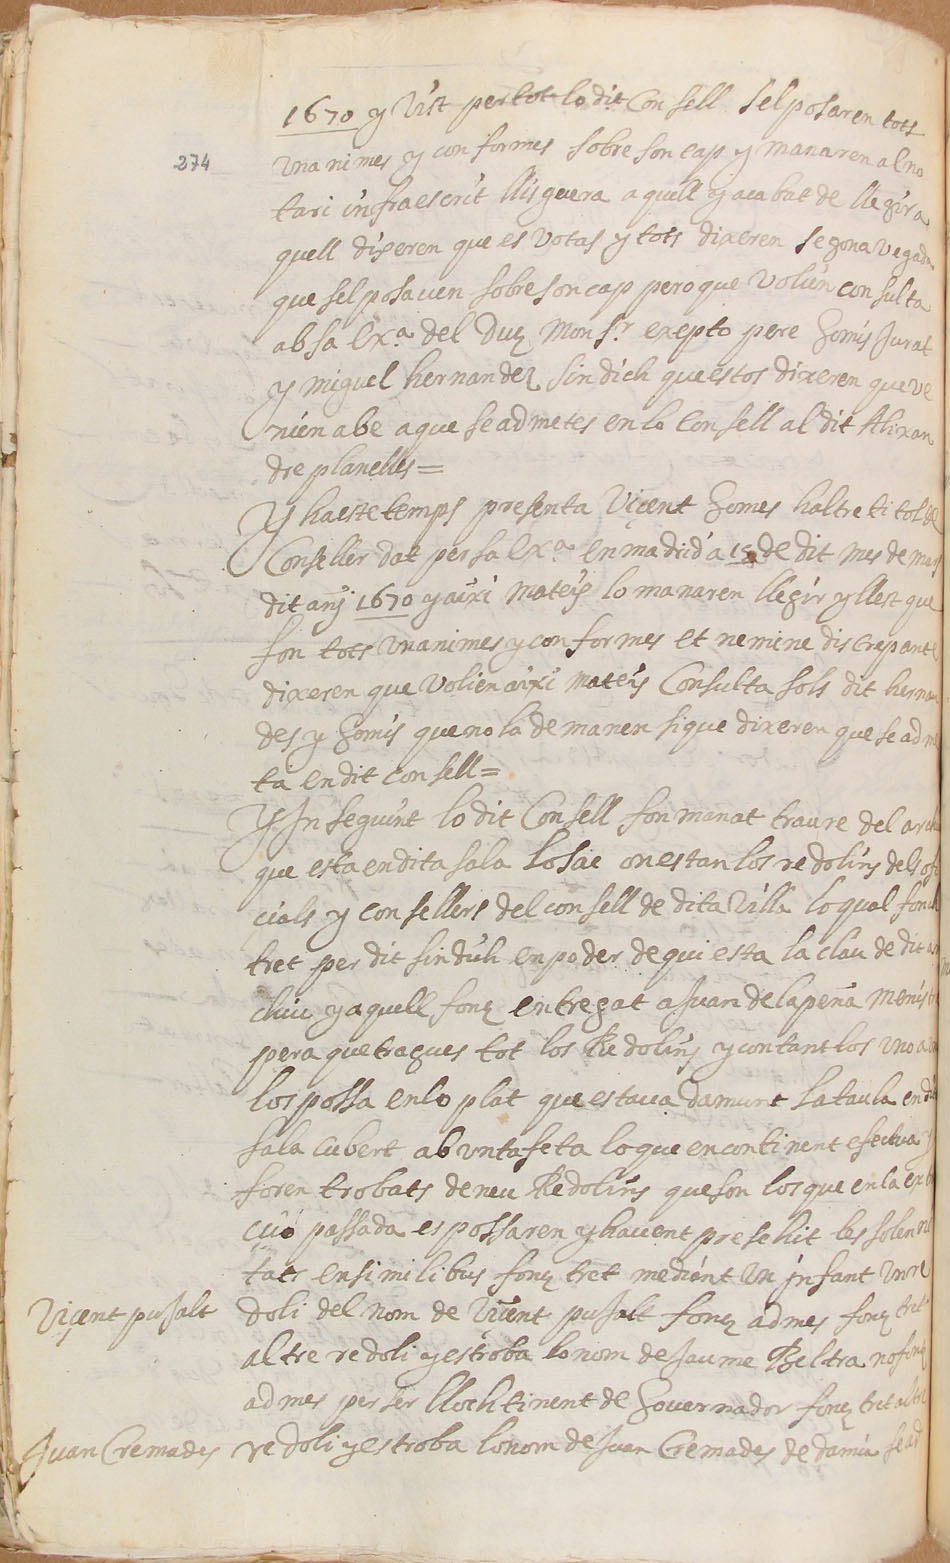 1670 y vist per tot lo dit Consell sel posaren tots
274
unanimes y conformes sobre son cap y manaren al no
tari infraescrit llisguera aquell y acabat de llegir a
quell dixeren que es votas y tots dixeren segona vegada
que sel posaven sobre son cap pero que volien consulta
ab sa Exa. del Duq Mon Sr. exepto pere Gomis Jurat
y miguel hernandez sindich que estos dixeren que ve
nien a be a que se admetes en lo Consell al dit Alixan
dre planelles=
Y ha este temps presenta Viçent Gomes haltre titol de
Conseller dat per sa Exa. en madrid a 15 de dit mes de mars
dit any 1670 y aixi mateix lo manaren llegir y llest que
fon tots unanimes y conformes et nemine discrepante
dixeren que volien aixi mateix Consulta sols dit hernan
des y Gomis que no la demanen si que dixeren que se adme
ta en dit consell=
Y In seguint lo dit Consell fon manat traure del archiu
que esta en dita sala lo sac on estan los redolins dels ofi
cials y consellers del consell de dita Villa lo qual fonch
tret per dit sindich en poder de qui esta la clau de dit ar
chiu y aquell fonq entregat a Juan de la peña Menistre
pera que tragues tot los Redolins y contant los uno a un
los possa en lo plat que estava damunt la taula en dita
sala cubert ab un tafeta lo que encontinent efectua y
foren trobats deneu Redolins que son los que en la extra
ccio passada es possaren y havent presehit les solenni
tats en similibus fonq tret mediant un infant un re
Viçent pusalt
doli del nom de Viçent pusalt fonq admes fonq tret
altre redoli y es troba lo nom de Jaume Beltra no fonq
admes per ser lloch tinent de Governador fonq tret altre
Juan Cremades
redoli y es troba lo nom de Juan Cremades de damia se ad